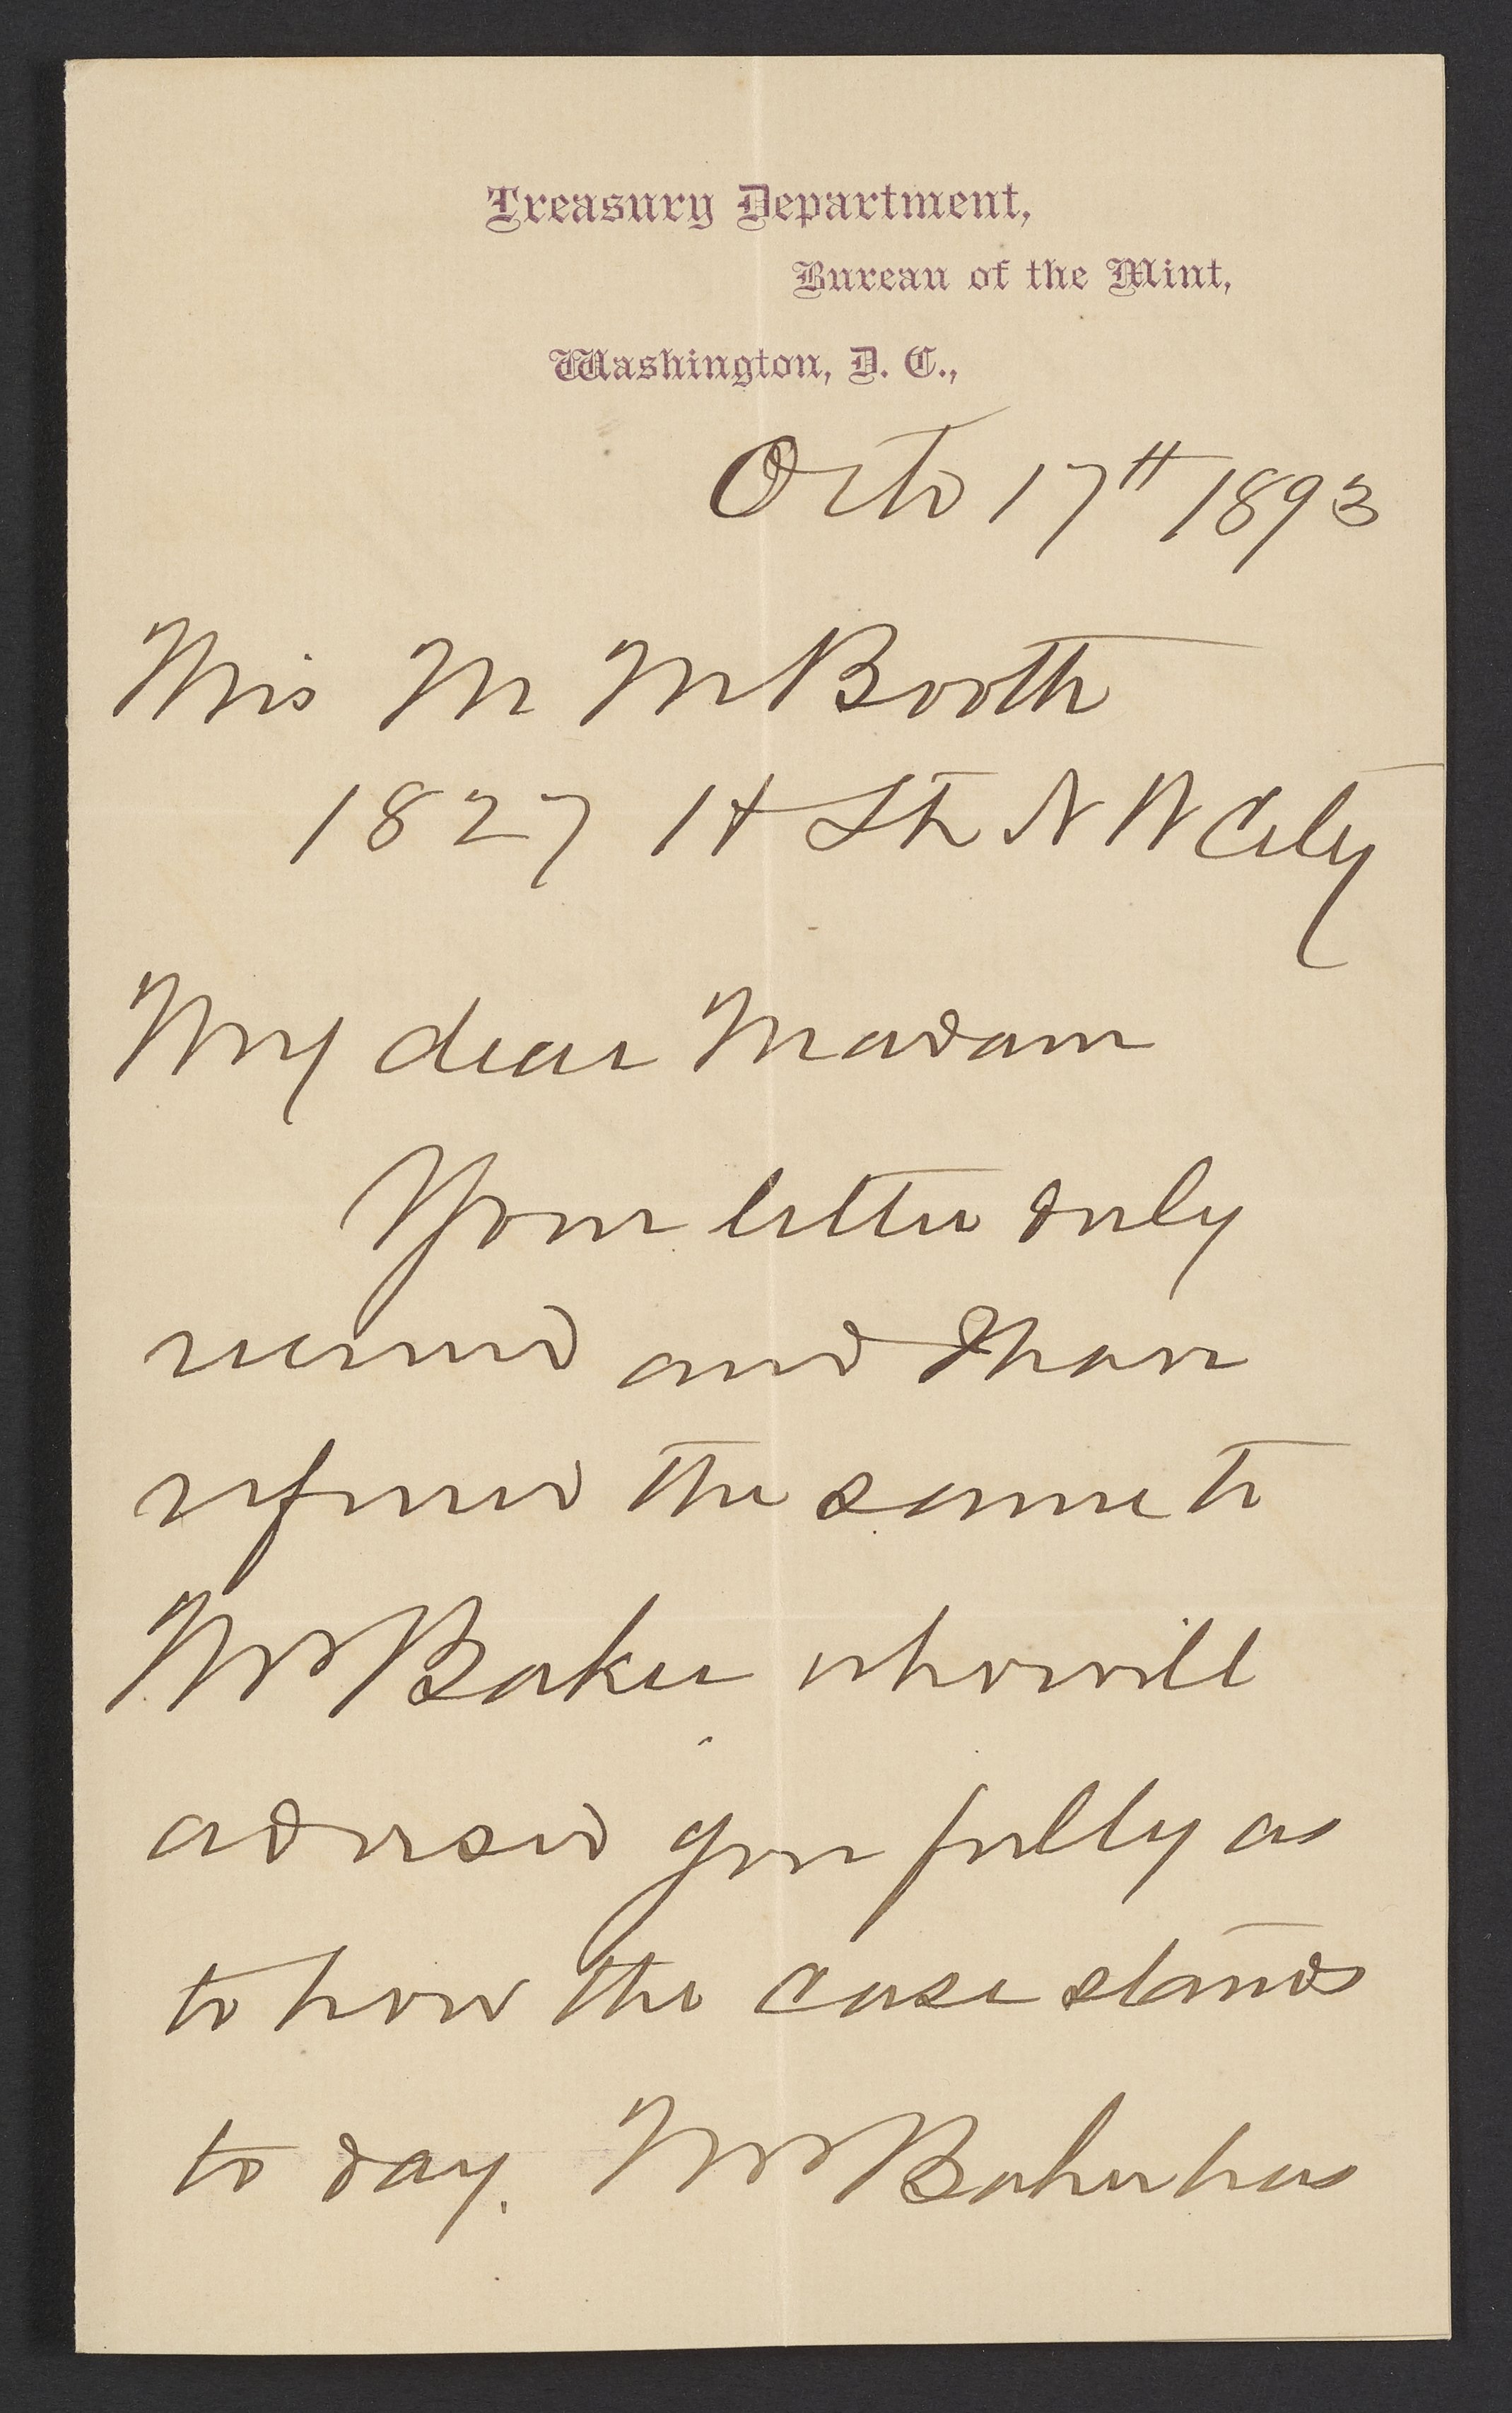 Treasury Department,
Bureau of the Mint,
Washington, D. C.,
Octo 17th 1893
Mrs M M Booth
1827 H St N W City
My dear Madam
Your letter duly
received and I have
referred the same to
Mr Baker who will
advised you fully as
to how the case stands
to day. Mr Baker has